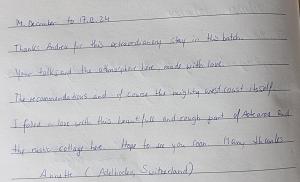 14. December to 17.12.24
Thanks Andrea for this extraordinary stay in this batch.
Your talks and the atmosphere here made with love.
The recommendations and of course the mighty west coast itself
I fored in love with this beautifull and rough part of Aotearoa and
the rustic cottage here. Hope to see you soon. Many thanks
Annette (Adelboden, Switzerland)